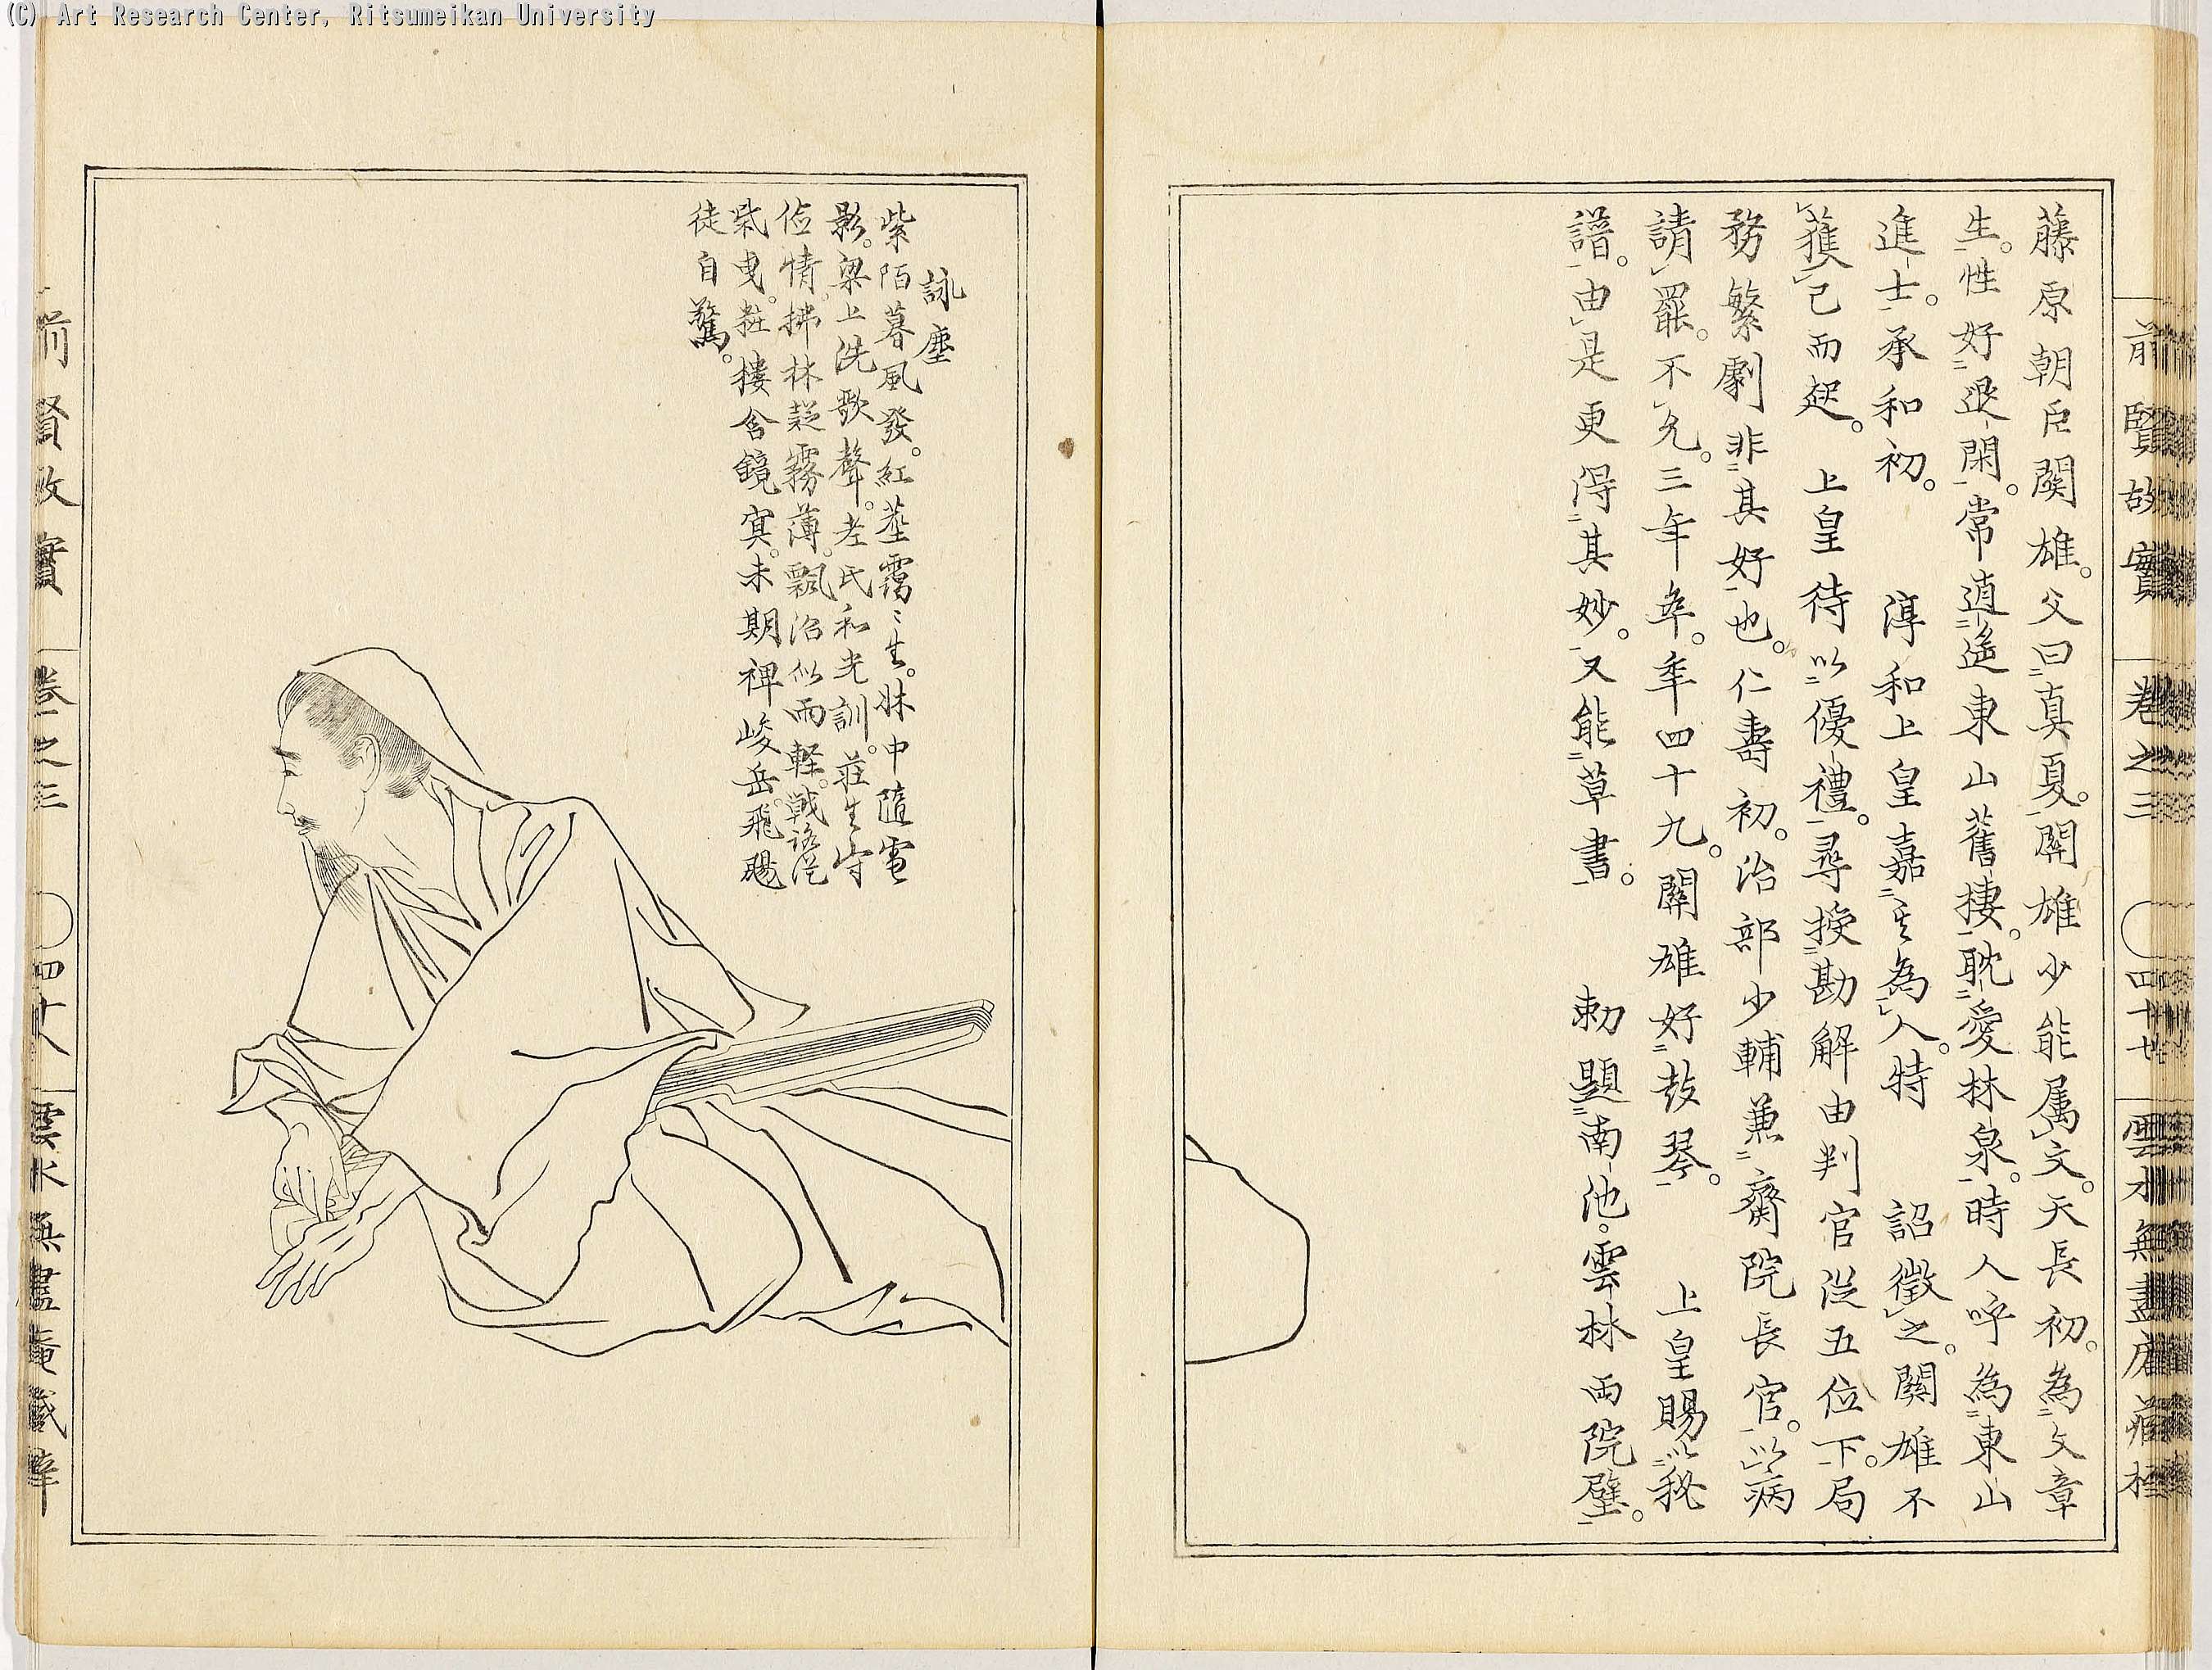 (C) Art Research Center, Ritsumeikan University
前賢故實 卷之三 四十七 雲水無盡庵藏梓
藤原朝臣關雄。父曰眞夏。關雄少能属文。天長初。為文章
生。性好退閑。常逍遥東山舊棲。耽愛林泉。時人呼為東山
進士。承和初。 淳和上皇嘉其為人。特 詔徵之。關雄不
獲已而起。 上皇待以優禮。尋授勘解由判官從五位下。局
務繁劇非其好也。仁壽初。治部少輔兼齋院長官。以病
請罷。不允。三年卒。年四十九。關雄好鼓琴。 上皇賜以秘
譜。由是更得其妙。又能草書。 勅題南池。雲林兩院壁。
詠塵
紫陌暮風發。紅塵靄〻生。牀中隨電
影。梁上洗歌聲。老氏和光訓。莊生守
儉情。拂林疑霧薄。飄沼似雨輕。戦路從
柴曳。粧樓含鏡冥。未期裨峻岳。飛颺
徒自驚。
前賢故實 卷之三 四十八 雲水無盡庵藏梓